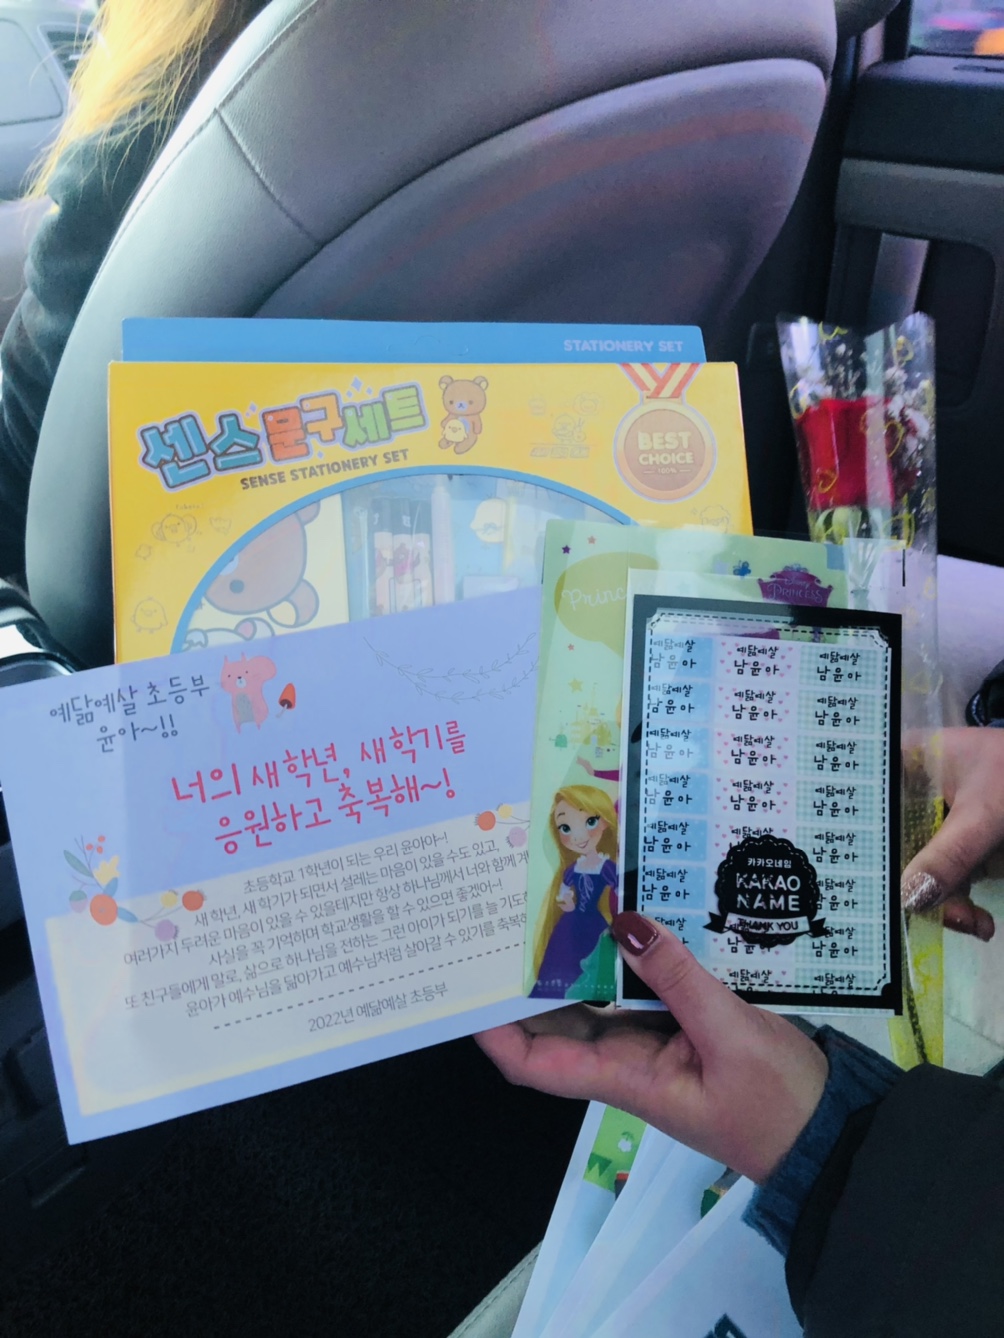 STATIONERY SET
센스 문구세트
SENSE STATIONERY SET
BEST
CHOICE
100%
예닮예살 초등부
윤아~!!
너의 새 학년, 새 학기를
응원하고 축복해~!
초등학교 1학년이 되는 우리 윤아야~!
새 학년, 새 학기가 되면서 설레는 마음이 있을 수도 있고,
여러가지 두려운 마음이 있을 수 있을테지만 항상 하나님께서 너와 함께 계
사실을 꼭 기억하며 학교생활을 할 수 있으면 좋겠어~!
또 친구들에게 말로, 삶으로 하나님을 전하는 그런 아이가 되기를 늘 기도하
윤아가 예수님을 닮아가고 예수님처럼 살아갈 수 있기를 축복해
2022년 예닮예살 초등부
Princ
Disney
PRINCESS
예닮예살 예닮예살 예닮예살
남윤아 남윤아 남윤아
예닮예살 예닮예살 예닮예살
남윤아 남윤아 남윤아
예닮예살 예닮예살 예닮예살
남윤아 남윤아 남윤아
예닮예살 예닮예살 예닮예살
남윤아 남윤아 남윤아
예닮예살 예닮예살 예닮예살
남윤아 남윤아
예닮예살 예닮예살
남윤아
예닮예살
예닮예살 예닮예살 예닮예살
카카오네임
KAKAO
NAME
THANK YOU